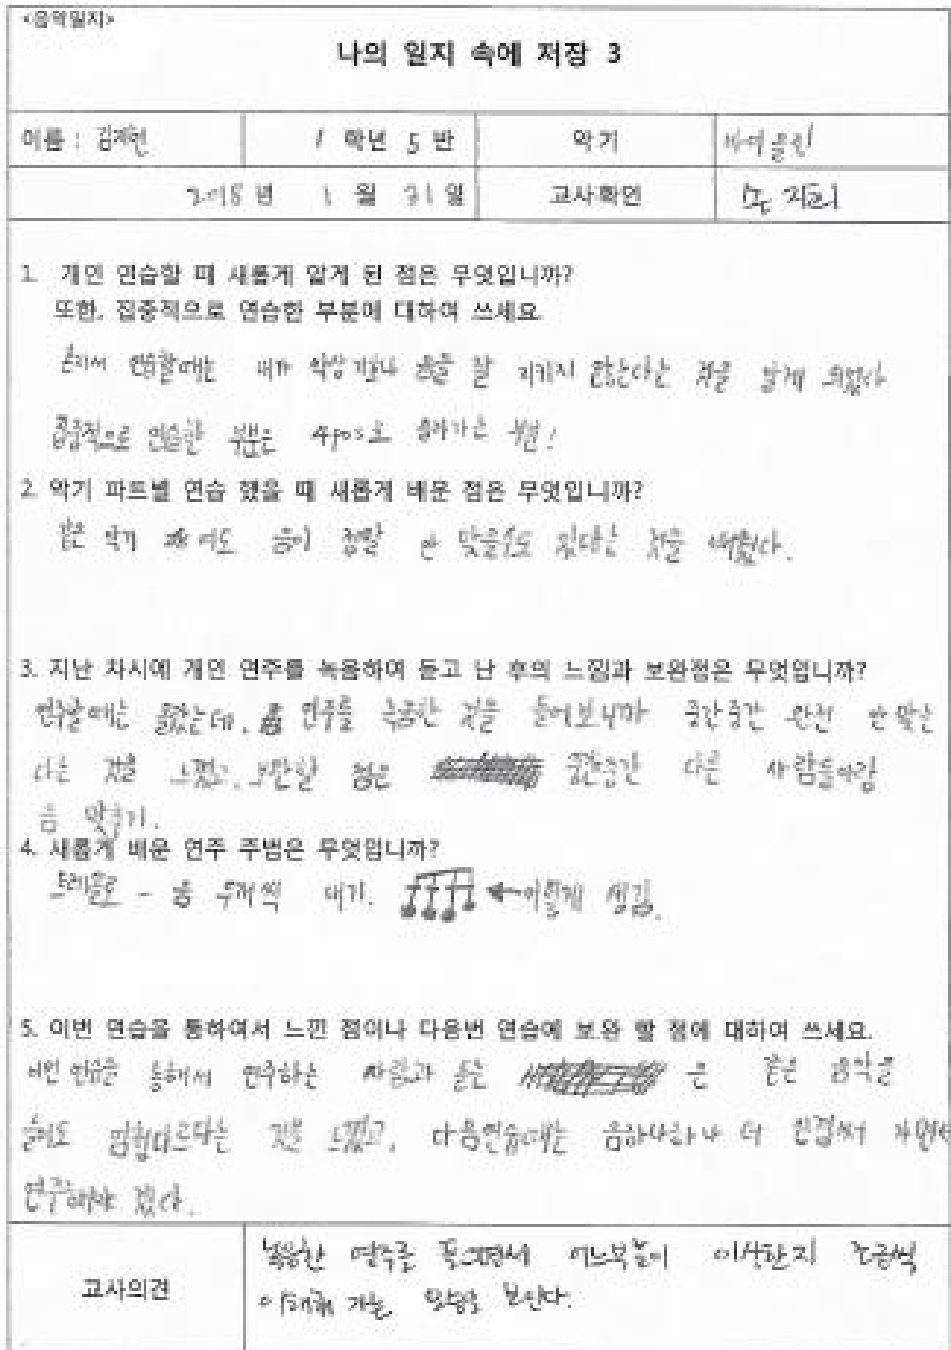 <음악일지>
나의 일지 속에 저장 3
이름 : 1 학년 5 반 악기 바이올린
2018 년 1 월 31 일 교사확인
1. 개인 연습할 때 새롭게 알게 된 점은 무엇입니까?
또한, 집중적으로 연습한 부분에 대하여 쓰세요
혼자서 연습할때는 내가 악상기호나 음을 잘 지키지 않는다는 것을 알게 되었다
집중적으로 연습한 부분은 4pos로 올라가는 부분!
2. 악기 파트별 연습 했을 때 새롭게 배운 점은 무엇입니까?
같은 악기 음이 정말 안 맞을수도 있다는 것을 배웠다.
3. 지난 차시에 개인 연주를 녹음하여 듣고 난 후의 느낌과 보완점은 무엇입니까?
연주할때는 몰랐는데, 연주를 녹음한 것을 들어보니까 중간중간 완전 안맞는
다는 것을 느꼈고, 보완할 점은 중간중간 다른 사람들이랑
음 맞추기.
4. 새롭게 배운 연주 주법은 무엇입니까?
트레몰로 - 음 두개씩 내기. ←이렇게 생김.
5. 이번 연습을 통하여서 느낀 점이나 다음번 연습에 보완 할 점에 대하여 쓰세요.
이번 연습을 통해서 연주하는 사람과 듣는 은 같은 음악을
들어도 다르다는 것을 느꼈고, 다음연습때는 음하나하나 더
연주해야 겠다.
교사의견 녹음한 연주를 들으면서 어느부분이 이상한지 조금씩
이해해 가는 모습을 보인다.